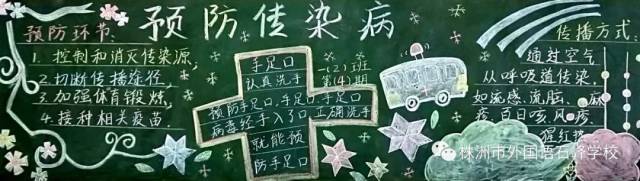 预防传染病
预防环节:
1.控制和消灭传染源,
2.切断传播途径,
3.加强体育锻炼,
4.接种相关疫苗
手足口
认真洗手
预防手足口,手足口,手足口
病毒经手入了口 正确洗手
就能预
防手足口
(2)班
第(4)期
传播方式:
通过空气
从呼吸道传染,
如流感、流脑、麻
疹、百日咳、风疹、
猩红热
株洲市外国语石峰学校